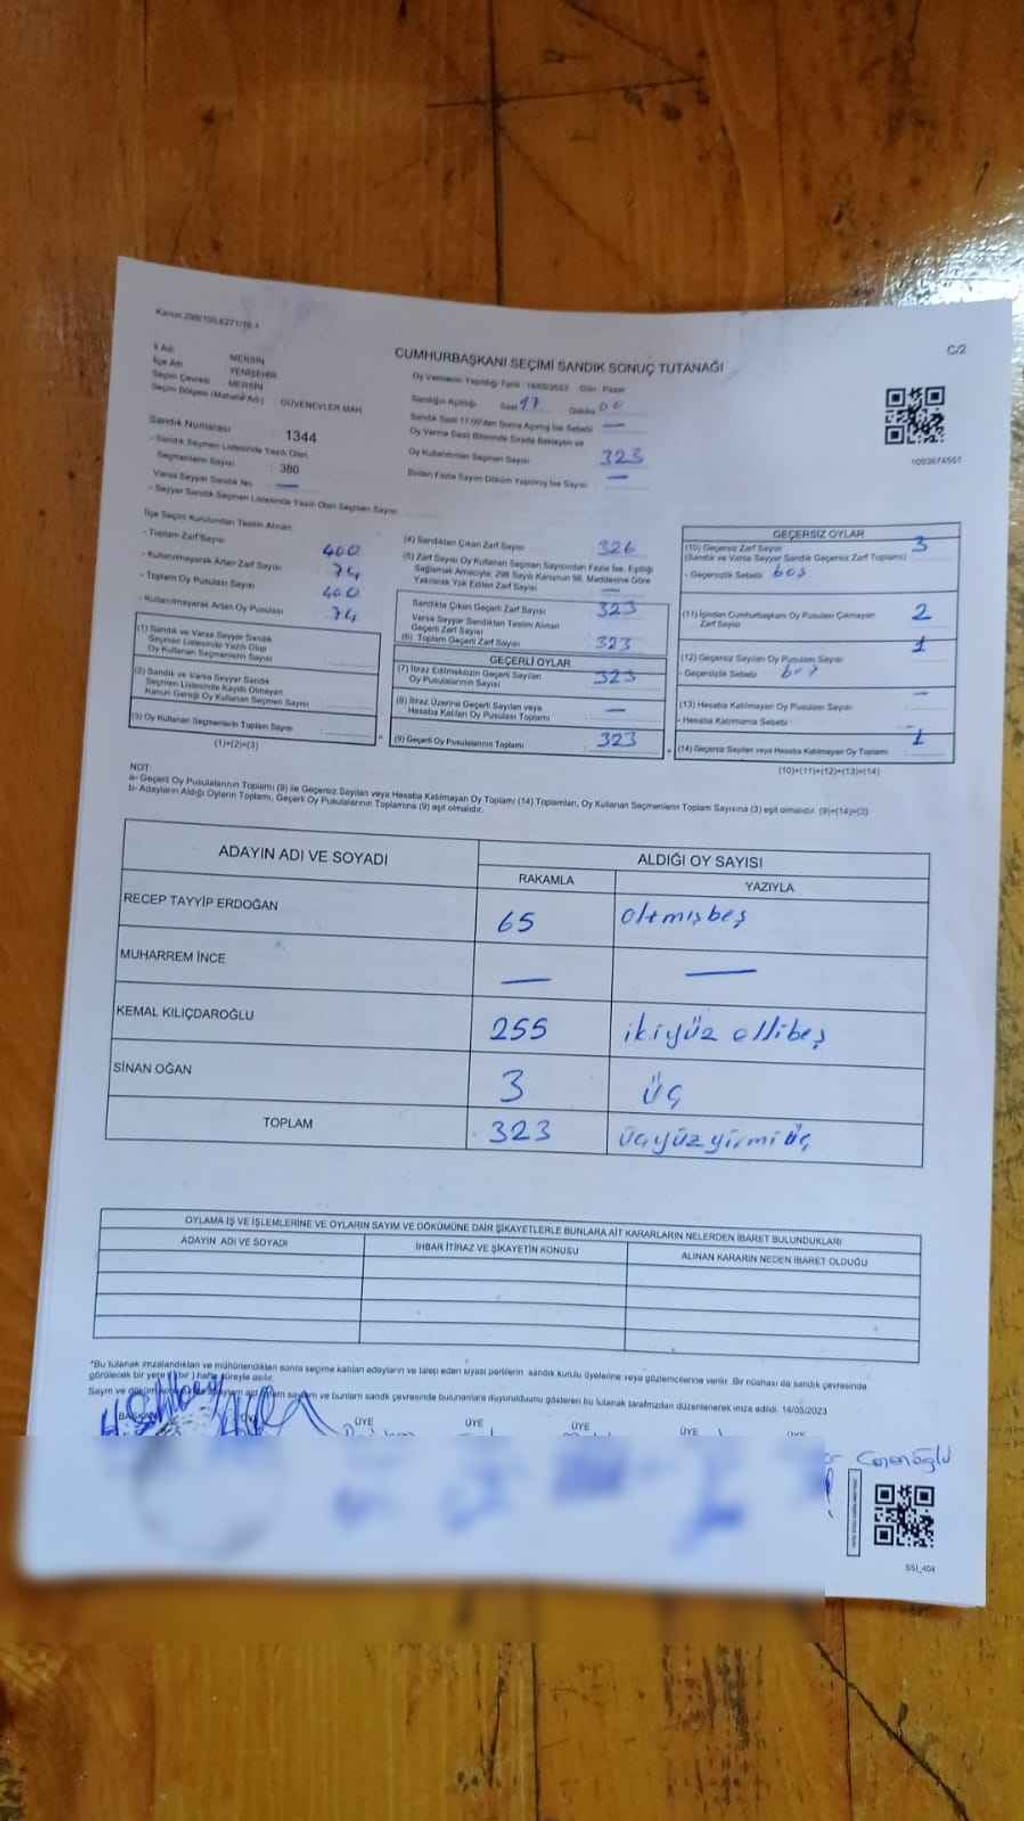 Kanun 298/105,6271/16.1
C/2
CUMHURBAŞKANI SEÇİMİ SANDIK SONUÇ TUTANAĞI
İl Adı MERSİN
İlçe Adı YENİŞEHİR
Seçim Çevresi MERSİN
Seçim Bölgesi (Mahalle Adı) GÜVENEVLER MAH.
Sandık Numarası 1344
- Sandık Seçmen Listesinde Yazılı Olan
Seçmenlerin Sayısı 380
Varsa Seyyar Sandık No —
- Seyyar Sandık Seçmen Listesinde Yazılı Olan Seçmen Sayısı
Oy Vermenin Yapıldığı Tarih : 14/05/2023 Gün : Pazar
Sandığın Açıldığı Saat 17 Dakika 00
Sandık Saat 17:00'den Sonra Açılmış İse Sebebi —
Oy Verme Saati Bitiminde Sırada Bekleyen ve
Oy Kullandırılan Seçmen Sayısı 323
Birden Fazla Sayım Döküm Yapılmış İse Sayısı —
İlçe Seçim Kurulundan Teslim Alınan
- Toplam Zarf Sayısı 400
- Kullanılmayarak Artan Zarf Sayısı 74
- Toplam Oy Pusulası Sayısı 400
- Kullanılmayarak Artan Oy Pusulası 74
(1) Sandık ve Varsa Seyyar Sandık
Seçmen Listesinde Yazılı Olup
Oy Kullanan Seçmenlerin Sayısı
(2) Sandık ve Varsa Seyyar Sandık
Seçmen Listesinde Kayıtlı Olmayan
Kanun Gereği Oy Kullanan Seçmen Sayısı
(3) Oy Kullanan Seçmenlerin Toplam Sayısı
(1)+(2)=(3)
(4) Sandıktan Çıkan Zarf Sayısı 326
(5) Zarf Sayısı Oy Kullanan Seçmen Sayısından Fazla İse, Eşitliği
Sağlamak Amacıyla, 298 Sayılı Kanunun 98. Maddesine Göre
Yakılarak Yok Edilen Zarf Sayısı —
Sandıkta Çıkan Geçerli Zarf Sayısı 323
Varsa Seyyar Sandıktan Teslim Alınan
Geçerli Zarf Sayısı
(6) Toplam Geçerli Zarf Sayısı 323
GEÇERLİ OYLAR
(7) İtiraz Edilmeksizin Geçerli Sayılan
Oy Pusulalarının Sayısı 323
(8) İtiraz Üzerine Geçerli Sayılan veya
Hesaba Katılan Oy Pusulası Toplamı —
(9) Geçerli Oy Pusulalarının Toplamı 323
GEÇERSİZ OYLAR
(10) Geçersiz Zarf Sayısı 3
(Sandık ve Varsa Seyyar Sandık Geçersiz Zarf Toplamı)
- Geçersizlik Sebebi boş
(11) İçinden Cumhurbaşkanı Oy Pusulası Çıkmayan
Zarf Sayısı 2
(12) Geçersiz Sayılan Oy Pusulası Sayısı 1
- Geçersizlik Sebebi
(13) Hesaba Katılmayan Oy Pusulası Sayısı —
- Hesaba Katılmama Sebebi -
(14) Geçersiz Sayılan veya Hesaba Katılmayan Oy Toplamı 1
(10)+(11)+(12)+(13)=(14)
NOT:
a- Geçerli Oy Pusulalarının Toplamı (9) ile Geçersiz Sayılan veya Hesaba Katılmayan Oy Toplamı (14) Toplamları, Oy Kullanan Seçmenlerin Toplam Sayısına (3) eşit olmalıdır. (9)+(14)=(3)
b- Adayların Aldığı Oyların Toplamı, Geçerli Oy Pusulalarının Toplamına (9) eşit olmalıdır.
ADAYIN ADI VE SOYADI ALDIĞI OY SAYISI
RAKAMLA YAZIYLA
RECEP TAYYİP ERDOĞAN 65 altmışbeş
MUHARREM İNCE — —
KEMAL KILIÇDAROĞLU 255 ikiyüz ellibeş
SİNAN OĞAN 3 üç
TOPLAM 323 üçyüzyirmi üç
OYLAMA İŞ VE İŞLEMLERİNE VE OYLARIN SAYIM VE DÖKÜMÜNE DAİR ŞİKAYETLERLE BUNLARA AİT KARARLARIN NELERDEN İBARET BULUNDUKLARI
ADAYIN ADI VE SOYADI İHBAR İTİRAZ VE ŞİKAYETİN KONUSU ALINAN KARARIN NEDEN İBARET OLDUĞU
*Bu tutanak imzalandıktan ve mühürlendikten sonra seçime katılan adayların ve talep eden siyasi partilerin sandık kurulu üyelerine veya gözlemcilerine verilir. Bir nüshası da sandık çevresinde
görülecek bir yere ( bir ) hafta süreyle asılır.
ve bunların sandık çevresinde bulunanlara duyurulduğunu gösteren bu tutanak tarafımızdan düzenlenerek imza edildi. 14/05/2023
ÜYE ÜYE ÜYE ÜYE
SSI_404